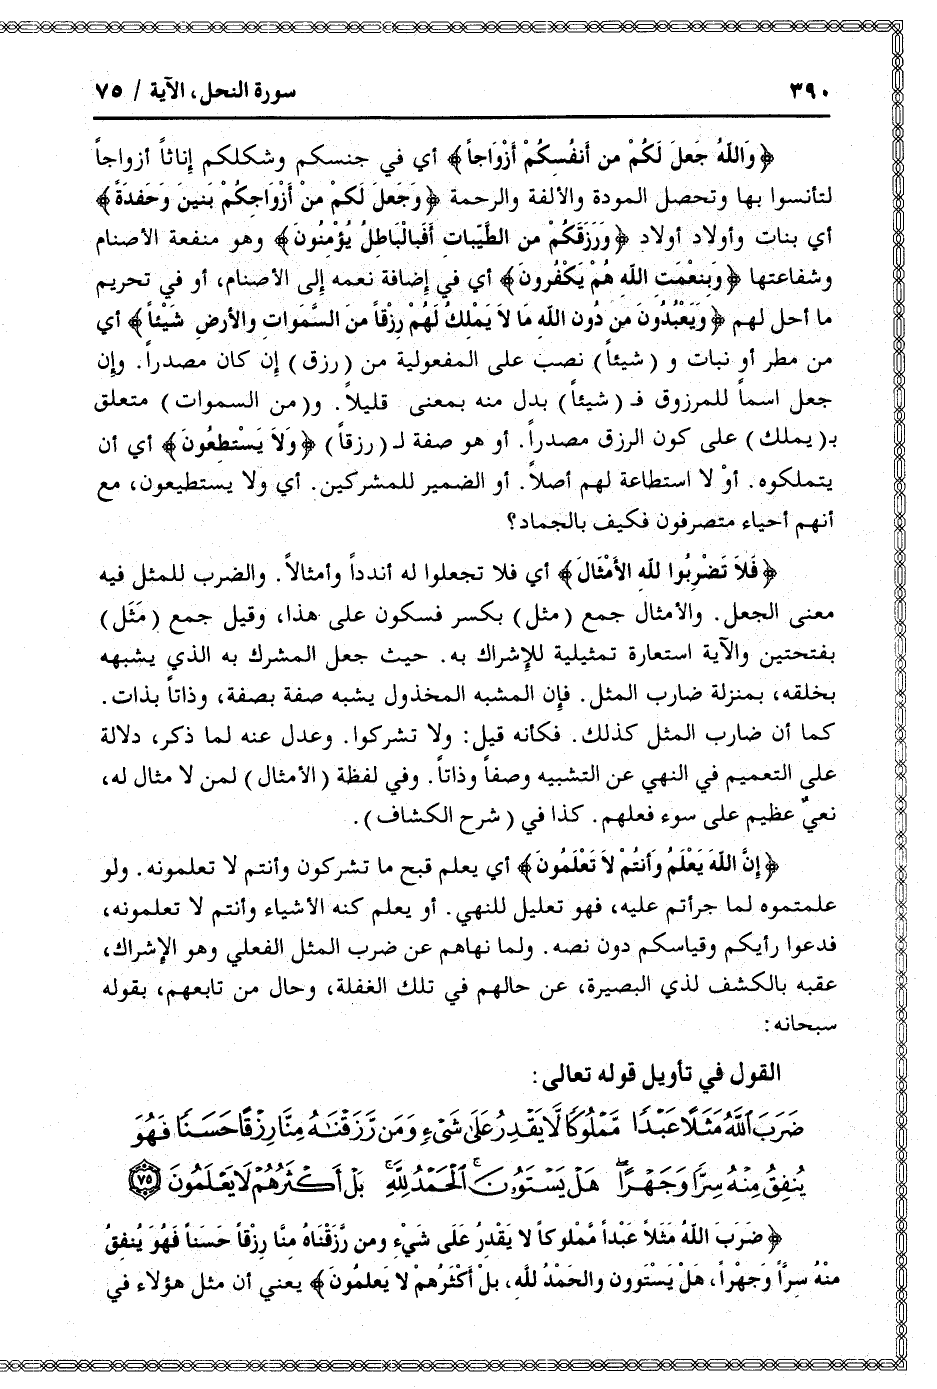 ٣٩٠
سورة النحل، الآية / ٧٥
﴿وَاللّهُ جَعلَ لَكُمْ من أَنفُسكُمْ أَزْوَاجاً﴾ أي في جنسكم وشكلكم إناثاً أزواجاً
لتأنسوا بها وتحصل المودة والألفة والرحمة ﴿وَجَعلَ لَكم منْ أَزْوَاجكُمْ بَنينَ وَحَفدَةً﴾
أي بنات وأولاد أولاد ﴿ورَزَقَكُمْ من الطَّيّبات أَفَبالْبَاطلُ يُؤْمنُونَ﴾ وهو منفعة الأصنام
وشفاعتها ﴿وَبنعْمَت اللّه هُمْ يَكْفُرونَ﴾ أي في إضافة نعمه إلى الأصنام، أو في تحريم
ما أحل لهم ﴿وَيَعْبُدُونَ منْ دُون اللّه مَا لاَ يَملكُ لَهُمْ رزْقاً منَ السَّمَوات والأرض شَيْئاً﴾ أي
من مطر أو نبات و (شيئاً) نصب على المفعولية من (رزق) إن كان مصدراً. وإن
جعل اسماً للمرزوق فـ (شيئاً) بدل منه بمعنى قليلاً. و(من السموات) متعلق
بـ(يملك) على كون الرزق مصدراً. أو هو صفة لـ (رزقاً) ﴿وَلاَ يَسْتطعُونَ﴾ أي أن
يتملكوه. أوْ لا استطاعة لهم أصلاً. أو الضمير للمشركين. أي ولا يستطيعون، مع
أنهم أحياء متصرفون فكيف بالجماد؟
﴿فَلاَ تَضْربُوا للّه الأَمْثَالَ﴾ أي فلا تجعلوا له أنداً وأمثالاً. والضرب للمثل فيه
معنى الجعل. والأمثال جمع (مثل) بكسر فسكون على هذا، وقيل جمع (مَثَل)
بفتحتين والآية استعارة تمثيلية للإشراك به. حيث جعل المشرك به الذي يشبهه
بخلقه، بمنزلة ضارب المثل. فإن المشبه المخذول يشبه صفة بصفة، وذاتاً بذات.
كما أن ضارب المثل كذلك. فكأنه قيل: ولا تشركوا. وعدل عنه لما ذكر، دلالة
على التعميم في النهي عن التشبيه وصفاً وذاتاً. وفي لفظة (الأمثال) لمن لا مثال له،
نعيٌ عظيم على سوء فعلهم. كذا في (شرح الكشاف).
﴿إنَّ اللّهَ يَعْلَمُ وَأَنتُمْ لاَ تَعْلَمُونَ﴾ أي يعلم قبح ما تشركون وأنتم لا تعلمونه. ولو
علمتموه لما جرأتم عليه، فهو تعليل للنهي. أو يعلم كنه الأشياء وأنتم لا تعلمونه،
فدعوا رأيكم وقياسكم دون نصه. ولما نهاهم عن ضرب المثل الفعلي وهو الإشراك،
عقبه بالكشف لذي البصيرة، عن حالهم في تلك الغفلة، وحال من تابعهم، بقوله
سبحانه:
القول في تأويل قوله تعالى:
ضَرَبَ ٱللَّهُ مَثَلًا عَبْدًا مَّمْلُوكًا لَّا يَقْدِرُ عَلَىٰ شَىْءٍ وَمَن رَّزَقْنَٰهُ مِنَّا رِزْقًا حَسَنًا فَهُوَ
يُنفِقُ مِنْهُ سِرًّا وَجَهْرًا ۖ هَلْ يَسْتَوُۥنَ ۚ ٱلْحَمْدُ لِلَّهِ ۚ بَلْ أَكْثَرُهُمْ لَا يَعْلَمُونَ ٧٥
﴿ضَرَبَ اللّهُ مَثَلاً عَبْداً مَّملوكاً لا يَقْدرُ عَلَى شَيْءٍ ومن رَّزَقْنَاهُ منَّا رزْقاً حَسَناً فَهُوَ يُنفقُ
منْهُ سرَّاً وَجَهْراً، هَلْ يَسْتَوون والحَمْدُ للّه، بلْ أَكْثَرُهمْ لا يَعلمُونَ﴾ يعني أن مثل هؤلاء في